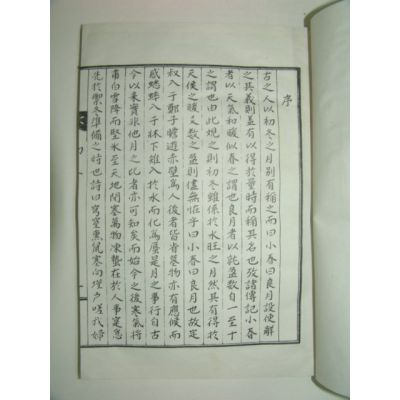 序
古之人以初冬之月別有稱之而曰小春曰良月設使解
之其義則盖有以得於童時而稱其名也攷諸傳記小春
者以天氣和暖似春之謂也良月者以就盈數自一至十
之謂也由此觀之則初冬雖係於水旺之月然其有得於
天侯之暖又數之盈則儘無怪乎曰小春曰良月也故芝
叔入于鄭子蟾遊赤壁爲人後者皆
感蟋蟀入于林下雉入於水而化爲蜃是月之事行自古
今以來實非他月之比者亦可知矣而始今之後寒氣將
甫白雪降而堅氷至天地閉塞萬物凍蟄在於人事寔急
先於禦冬準備之時也詩曰穹窒熏鼠塞向墐戶嗟我婦